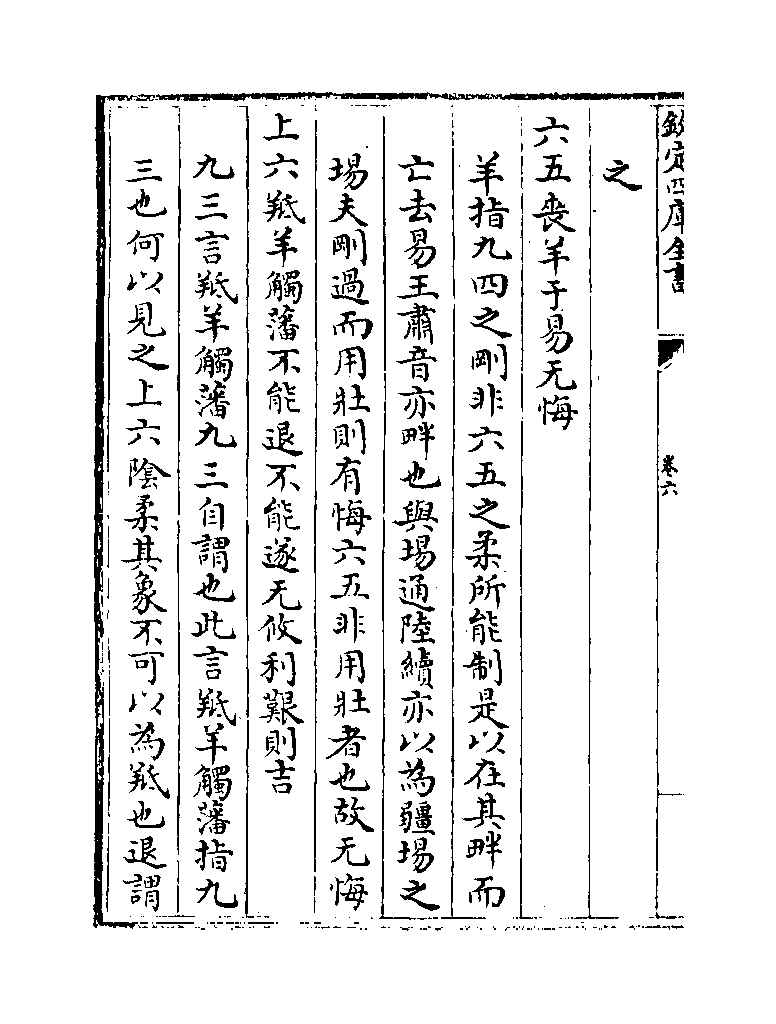 欽定四庫全書
卷六
之
六五喪羊于易无悔
羊指九四之剛非六五之柔所能制是以在其畔而
亡去易王肅音亦畔也與埸通陸續亦以為疆埸之
埸夫剛過而用壯則有悔六五非用壯者也故无悔
上六羝羊觸藩不能退不能遂无攸利艱則吉
九三言羝羊觸藩九三自謂也此言羝羊觸藩指九
三也何以見之上六陰柔其象不可以為羝也退謂